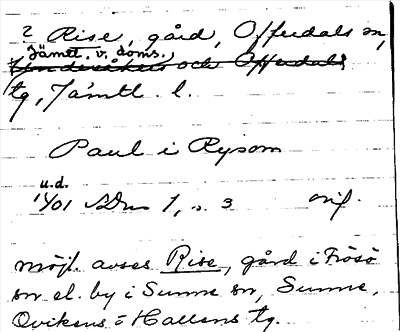 ? Rise, gård, Offerdals sn,
Jämtl. v. doms.,
Undersåkers och Offerdals
tg, Jämtl. l.
Paul i Rysom
u.d.
1/01 s. 3 orig.
möjl. avses Rise, gård i Frösö
sn el. by i Sunne sn, Sunne,
Ovikens o Hallens tg.